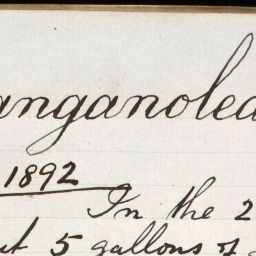 anganoled
1892
In the 2
ut 5 gallons of